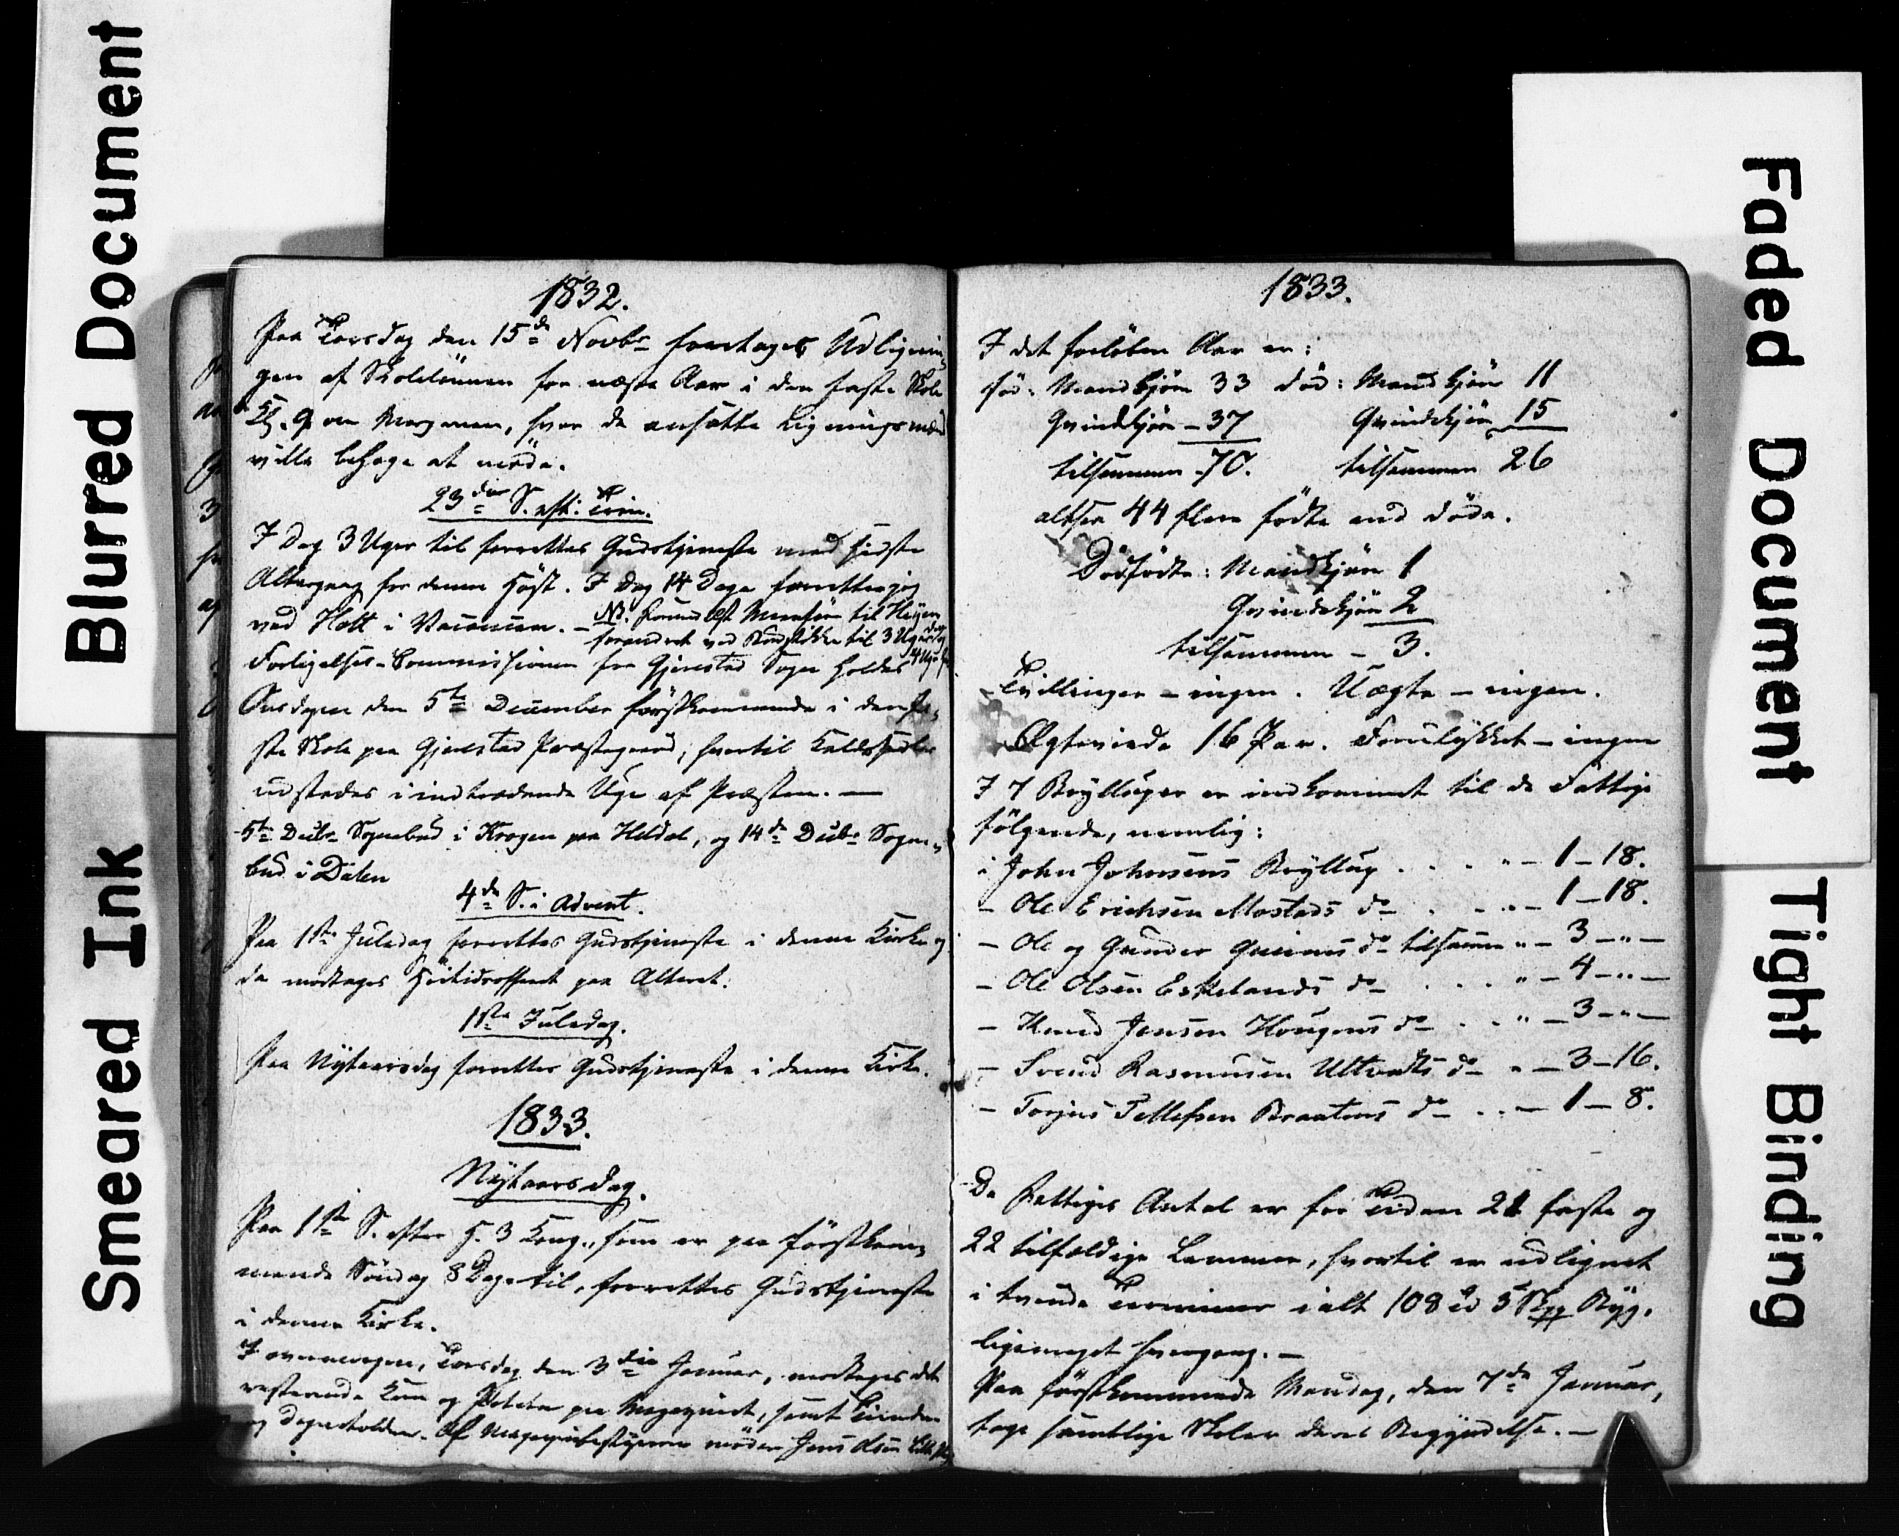 Blurred Document
Smeared Ink
1832.
Paa Torsdag den 15de Novbr foretages Udlignin-
gen af Skolelønnen for næste Aar i den faste Skole
Kl. 9 om Morgenen, hvor de ansatte Ligningsmænd
ville behage at møde.
23de S. eft: Trin.
I Dag 3 Uger til forrettes Gudstjeneste med sidste
Altergang for denne Høst. I Dag 14 Dage forretter jeg
ved Holt i Vacancen. – NB.
forandret ved til 3 Uger
Forligelses-Commissionen for Gjerestad Sogn holdes
Onsdagen den 5te December førstkommende i den fa-
ste Skole paa Gjerestad Præstegaard, hvortil Kaldssedler
udstedes i indtrædende Uge af Præsten. —
5te Decbr Sognebud i Krogen paa Heldal, og 14de Decbr Sogne-
bud i Dalen
4de S. i Advent.
Paa 1ste Juledag forrettes Gudstjeneste i denne Kirke og
da modtages Høitidsofferet paa Alteret.
1ste Juledag.
Paa Nytaarsdag forrettes Gudstjeneste i denne Kirke.
1833.
Nytaarsdag.
Paa 1ste S. efter H. 3 Kong., som er paa førstkom-
mende Søndag 8 Dage til, forrettes Gudstjeneste
i denne Kirke.
I overmorgen, Torsdag den 3die Januar, modtages det
resterende Korn og Poteter paa Magazinet, samt Tienden
og Degnetolden. Af Magazinbestyrerne møder Jens Olsen
1833.
I det forløbne Aar er:
fød: Mandkjøn 33 død: Mandkjøn 11
Qvindekjøn – 37 Qvindekjøn 15
tilsammen – 70. tilsammen 26
altsaa 44 flere fødte end døde.
Dødfødte: Mandkjøn 1
Qvindekjøn 2
tilsammen – 3.
Tvillinger – ingen. Uægte – ingen.
Ægteviede 16 Par. Forulykket – ingen
I 7 Brylluper er indkommet til de Fattige
følgende, nemlig:
i John Johnsens Bryllup . . . " – 1 – 18.
– Ole Erichsen Mostads do . . . " – 1 – 18.
– Ole og Gunder do tilsammen " – 3 – " –
– Ole Olsen Eskelands do . . . " – 4 – " –
– Knud Jensen Hougens do . . " – 3 – " –
– Svend Rasmusen Ultveits do " – 3 – 16.
– Torjus Tellefsen Braatens do . . – 1 – 8.
De Fattiges Antal er for Tiden 21 faste og
22 tilfældige Lemmer, hvortil er udlignet
i tvende Terminer ialt 108 5 Skpp Byg,
ligemeget hvergang. –
Paa førstkommende Mandag, den 7de Januar,
tage samtlige Skoler deres Begyndelse. –
Faded Document
Tight Binding